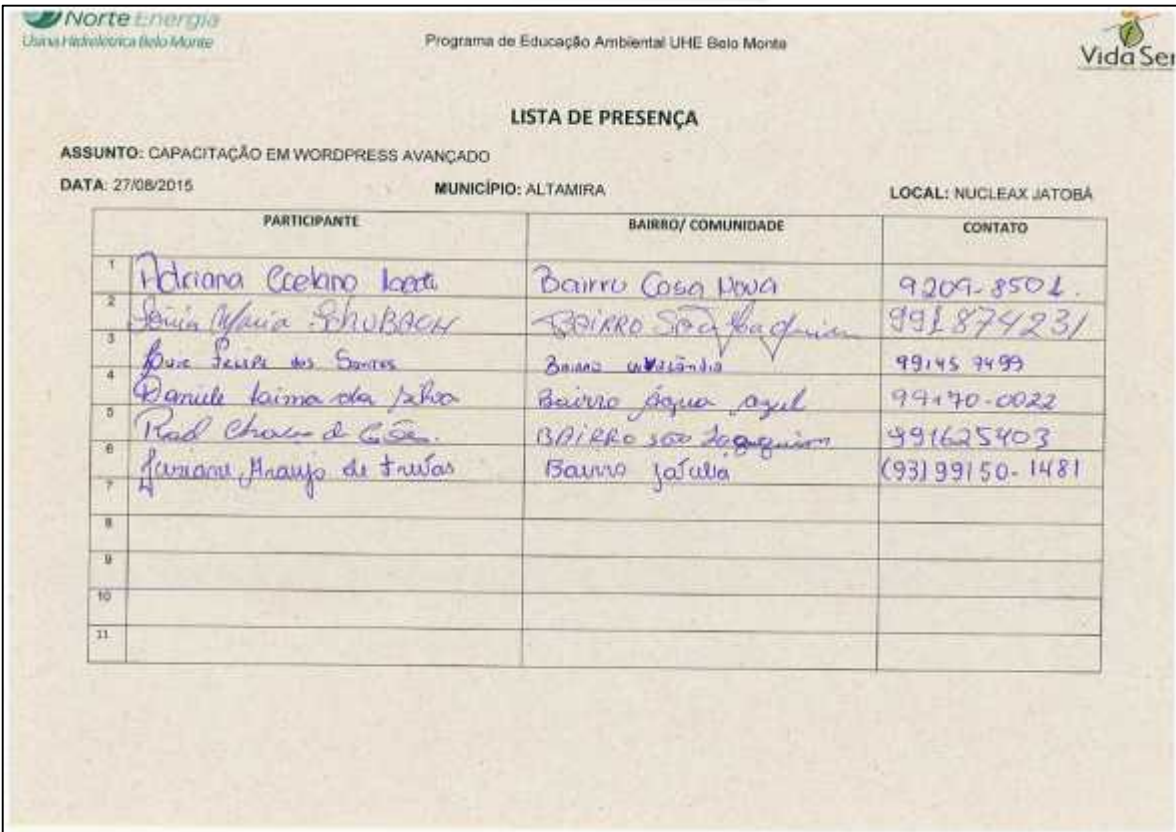 Norte Energia
Usina Hidrelétrica Belo Monte
Programa de Educação Ambiental UHE Belo Monte
Vida Ser
LISTA DE PRESENÇA
ASSUNTO: CAPACITAÇÃO EM WORDPRESS AVANÇADO
DATA: 27/08/2015 MUNICÍPIO: ALTAMIRA LOCAL: NUCLEAX JATOBÁ
PARTICIPANTE BAIRRO/ COMUNIDADE CONTATO
1 Adriana Bairro Casa Nova 9209-8501.
2 Sônia Maria SchuBACH BAIRRO São Joaquim 991874231
3 Felipe dos Santos Bairro 99145 7499
4 Daniele Laima da Silva Bairro Água azul 99170-0022
5 BAIRRO são Joaquim 991625403
6 Araujo de Freitas Bairro (93) 99150-1481
7
8
9
10
11